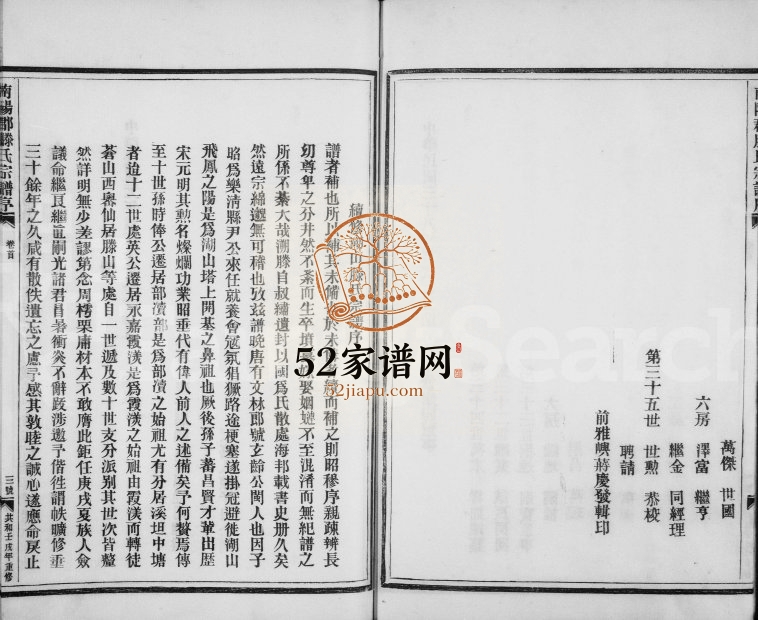 萬傑 世國
六房 澤富 繼亨
繼金 同經理
第三十五世 世勲 恭梭
聘請
前雅嶼蔣慶發輯印
南陽郡滕氏宗譜序
卷首
三號
共和壬戌年重修
滕氏宗譜序
譜者補也所以補其未備於未而補之則昭穆序親疎辨長
幼尊卑之分井然不紊而生卒墳娶姻嫿不至混淆而無紀譜之
所係不綦大哉溯滕自叔繡遺封以國爲氏散處海邦載書史册久矣
然遠宗綿邈無可稽也攷兹譜晩唐有文林郎號玄齡公閩人也因子
昭爲樂清縣尹公來任就養會冦氛猖獗路途梗塞遂掛冠避徙湖山
飛鳳之陽是爲湖山塔上開基之鼻祖也厥後孫子蕃昌賢才輩出歷
宋元明其勲名燦爛功業昭垂代有偉人前人之述備矣予何贅焉傳
至十世孫時俸公遷居部瀆是爲部瀆之始祖尤有分居溪坦中塘
者迨十二世處英公遷居永嘉霞漢是爲霞漢之始祖由霞漢而轉徙
蒼山西嶴仙居滕山等處自一世遞及數十世支分派别其世次皆釐
然詳明無少差謬第念周樗栗庸材本不敢膺此鉅任庚戌夏族人僉
議命繼良繼嗣光諸君冐暑衝炎不辭跋涉邀予偕徃謂帙曠修垂
三十餘年之久咸有散佚遺忘之慮予感其敦睦之誠心遂應命戾止
52家谱网
52jiapu.com
Search